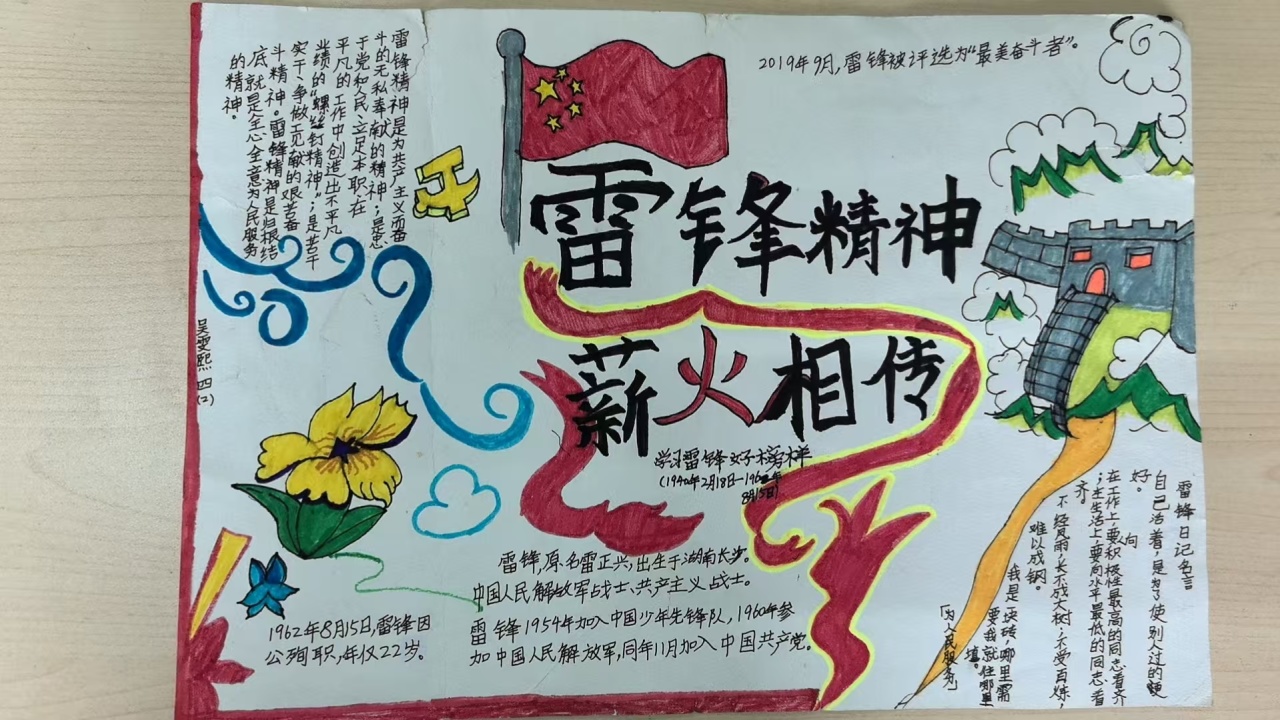 雷锋精神是为共产主义而奋
斗的无私奉献的精神；是忠
于党和人民、立足本职、在
平凡的工作中创造出不平凡
业绩的“螺丝钉精神”；是苦干
实干、争做贡献的艰苦奋
斗精神。雷锋精神是归根结
底，就是全心全意为人民服务
的精神。
2019年9月，雷锋被评选为“最美奋斗者”。
雷锋精神
薪火相传
学习雷锋好榜样
(1940年12月18日—1962年
8月15日)
吴雯熙 四(2)
雷锋，原名雷正兴，出生于湖南长沙。
中国人民解放军战士、共产主义战士。
雷锋1954年加入中国少年先锋队，1960年参
加中国人民解放军，同年11月加入中国共产党。
1962年8月15日，雷锋因
公殉职，年仅22岁。
雷锋日记名言
自己活着，是为了使别人过的更
好。
在工作上，要向积极性最高的同志看齐
；在生活上，要向水平最低的同志看
齐。
不经风雨，长不成大树；不受百炼，
难以成钢。
我是一块砖，哪里需
要我就往哪里
填。
「为人民服务」